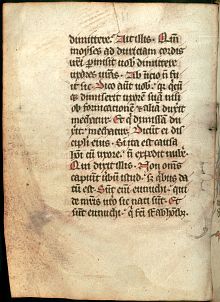 dimittere. Ait illis. Qm̄
moyses ad duritiam cordis
vr̄i pmisit vob dimittere
uxores vr̄as. Ab īicio n̄ fu
it sic. Dico aūt vob. qr qcū
qꝫ dimiserit uxorē suā nisi
ob fornicationē ⁊ aliā duxit
mechatur. Et q dimissā du
xit. mechatur. Dicūt ei dis
cipli eius. Si ita est causa
hōī cū uxore. n̄ expedit nube
Qui dixit illis. Non om̄s
capiūt ūbū istud. s; qbus da
tū est. Sūt eni eunuchi. qui
de mr̄is uto sic nati sūt. Et
sūt eunuchi. q fc̄i st ab hōībꝫ.